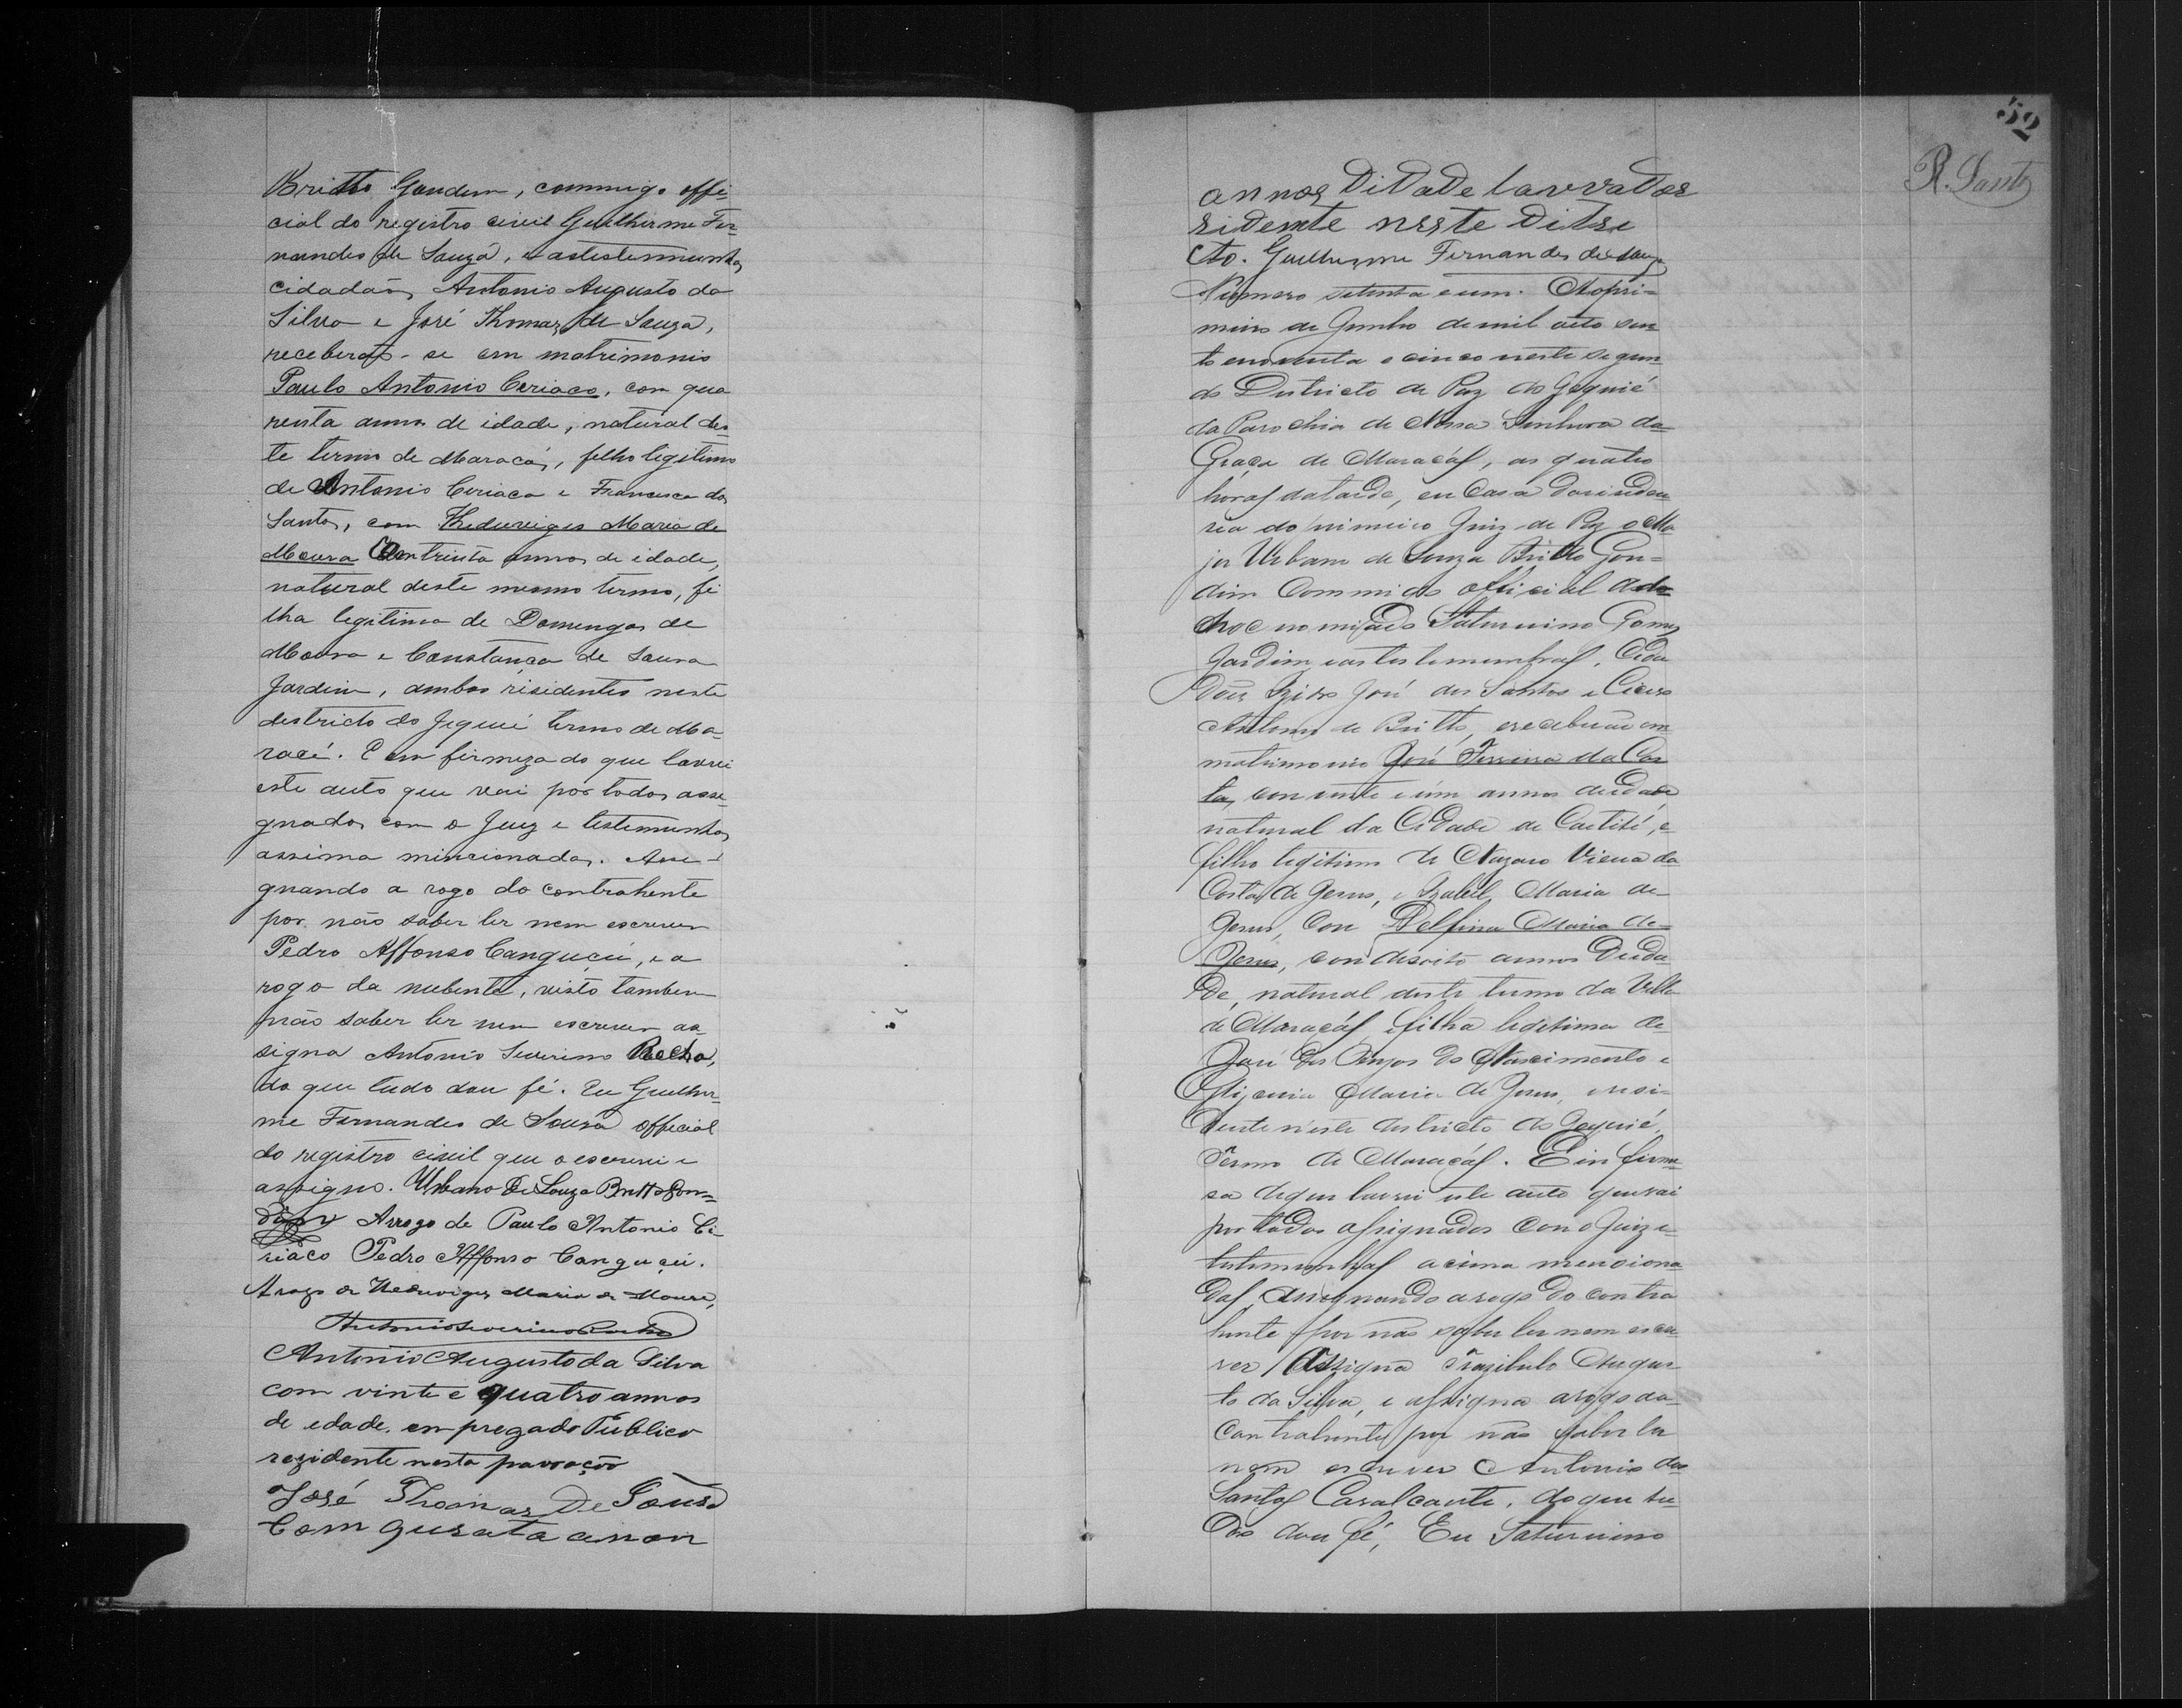 Britto Gondim, commigo offi-
cial do registro civil Guilherme Fer-
nandes de Souza, e as testemunhas
cidadãos Antonio Augusto da
Silva e José Thomaz de Souza,
receberão-se em matrimonio
Paulo Antonio Ceriaco, com qua
renta annos de idade, natural des-
te termo de Maracás, filho legitimo
de Antonio Ceriaco e Francisca dos
Santos, com Hedwviges Maria de
Moura Com trinta annos de idade,
natural deste mesmo termo, fi
lha legitima de Domingos de
Moura e Constança de Souza
Jardim, ambos risidentes neste
districto do Jequié termo de Ma-
racá. E em firmeza do que lavrei
este auto que vai por todos assi-
gnados com o Juiz e testemunhas
assima mincionadas. Assi-
gnando a rogo do contrahente
por não saber ler nem escrever
Pedro Affonso Canguçú, e a
rogo da nubente, visto tambem
não saber ler nem escrever as-
signa Antonio Severino Rocha,
do que tudo dou fé. Eu Guilher-
me Fernandes de Souza official
do registro civil que o escrevi e
assigno. Urbano De Souza Britto Gon-
dim Arrogo de Paulo Antonio Ci-
riaco Pedro Affonso Canguçú.
Arogo de Hedwviges Maria de Moura,
Antonio Severino Rocha
Antonio Augusto da Silva
com vinte e quatro annos
de edade. empregado Publico
rezidente nesta povoação
José Thomas De Souza
Com qurata annon
52
R. Santos
annos DiDaDe lavraDor
ridente neste Ditri
cto. Guilherme Fernandes de Souza
Numero setenta e um. Ao pri-
meiro de Junho de mil oito cen
to e noventa e cinco neste segun-
do Districto de Paz do Gequié
da Parochia de Nossa Senhora da
Graça de Maracás, as quatro
horas da tarde, en Casa
do primeiro Juiz de Paz o Ma
jor Urbano de Souza Britto Gon-
dim Commigo official ado
choc nomiado Saturnino Gomes
Jardim e as testemunhas, Cida
Dões Izidro José dos Santos e Cicero
Antonio de Britto, e receberão em
matrimonio José Ferreira da Cos
ta, con vinte e úm annos de idade
natural da Cidade de Caetité, e
filho legitimo de Nazario Vieira da
Costa de Jesus, e Izabel Maria de
Jesus, Con Delfina Maria de
Jesus, con desoito annos Dieda
De, natural deste termo da Villa
de Maracás e filha legitima de
José dos Anjos do Nascimento e
Maria de Jesus, e resi-
dente n'este destricto do Gequié,
Termo de Maracás. E in firme
sa do que lavrei este auto que vai
por todos assignados Con o Juiz e
testemunhas acima menciona
das, Assignando a rogo do contra
hente por não saber ler nem escre
ver Assigna Trazibulo Augus
to da Silva, e assigna a rogo da
Contrahente por não saber ler
nem escrever Antonio dos
Santos Cavalcante, do que tu-
do dou fé, Eu Saturnino